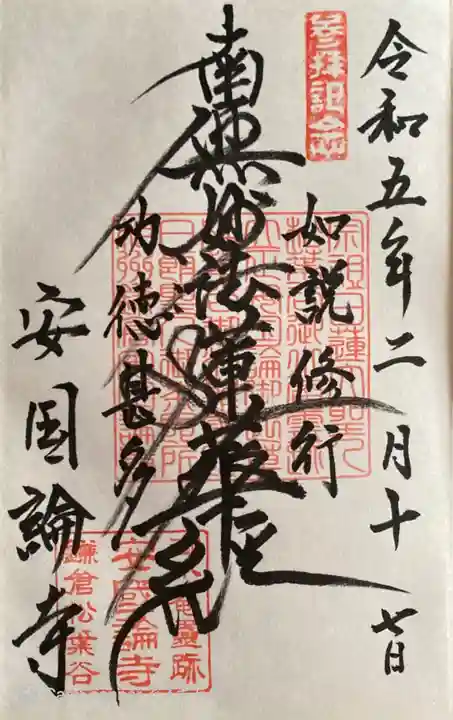 令和五年二月十七日
参拝記念
如説修行
南無妙法蓮華経
功徳甚多
安国論寺
安国論寺
鎌倉松葉谷